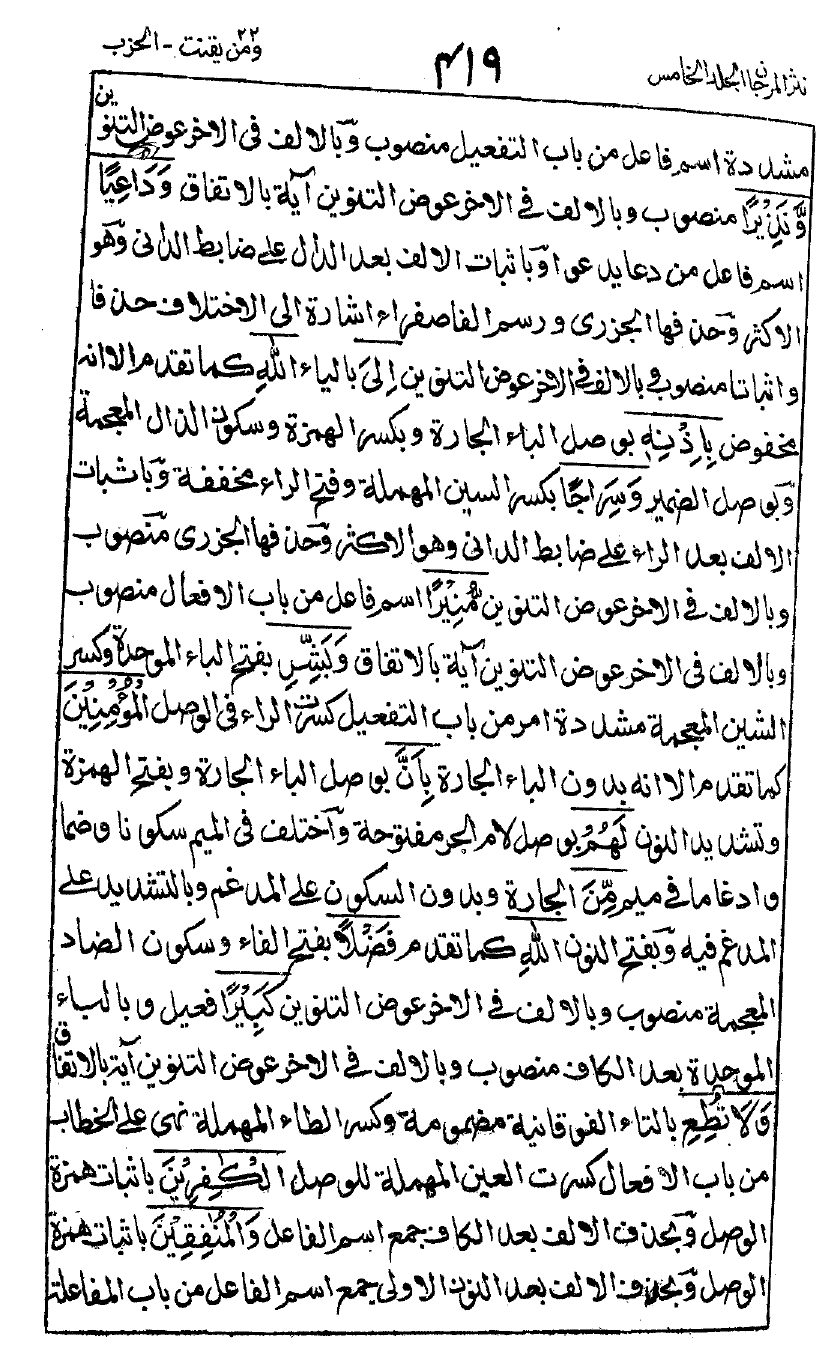 نثر المرجان الجلد الخامس
٤١٩
ومن يقنت ٢٢ - الحزب
مشددة اسم فاعل من باب التفعيل منصوب وبالالف فى الاخر عوض التنوين
وَّنَذِيْرًا منصوب وبالالف فى الاخر عوض التنوين آية بالاتفاق وَدَاعِيًا
اسم فاعل من دعا يدعو وباثبات الالف بعد الدال على ضابط الدانى وهو
الاكثر وحذفها الجزرى ورسم الفا صفراء اشارة الى الاختلاف حذفا
واثباتا منصوب وبالالف فى الاخر عوض التنوين اِلىَ بالياء اللّٰهِ كما تقدم الا انه
مخفوض بِاِذْنِهٖ بوصل الباء الجارة وبكسر الهمزة وسكون الذال المعجمة
وبوصل الضمير وَسِرَاجًا بكسر السين المهملة وفتح الراء مخففة وباثبات
الالف بعد الراء على ضابط الدانى وهو الاكثر وحذفها الجزرى منصوب
وبالالف فى الاخر عوض التنوين مُّنِيْرًا اسم فاعل من باب الافعال منصوب
وبالالف فى الاخر عوض التنوين آية بالاتفاق وَبَشِّرِ بفتح الباء الموحدة وكسر
الشين المعجمة مشددة امر من باب التفعيل كسرت الراء فى الوصل الْمُؤْمِنِيْنَ
كما تقدم الا انه بدون الباء الجارة بِاَنَّ بوصل الباء الجارة وبفتح الهمزة
وتشديد النون لَهُمْ بوصل لام الجر مفتوحة واختلف فى الميم سكونا وضما
وادغاما فى ميم مِّنَ الجارة وبدون السكون على المدغم وبالتشديد على
المدغم فيه وبفتح النون اللّٰهِ كما تقدم فَضْلًا بفتح الفاء وسكون الضاد
المعجمة منصوب وبالالف فى الاخر عوض التنوين كَبِيْرًا فعيل وبالباء
الموحدة بعد الكاف منصوب وبالالف فى الاخر عوض التنوين آية بالاتفاق
وَلَا تُطِعِ بالتاء الفوقانية مضمومة وكسر الطاء المهملة نهى على الخطاب
من باب الافعال كسرت العين المهملة للوصل الْكٰفِرِيْنَ باثبات همزة
الوصل وبحذف الالف بعد الكاف جمع اسم الفاعل وَالْمُنٰفِقِيْنَ باثبات همزة
الوصل وبحذف الالف بعد النون الاولى جمع اسم الفاعل من باب المفاعلة